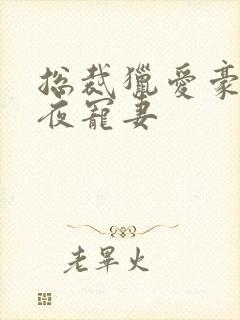 总裁獵愛豪
夜寵妻
老畢火